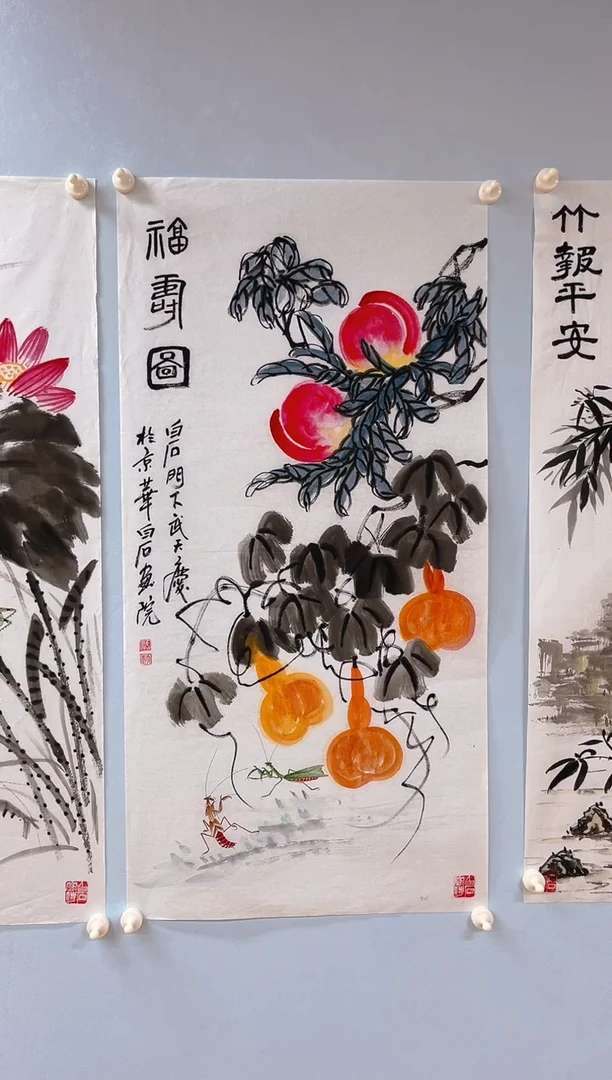 福壽圖
白石門下武天慶
於京華白石画院
竹報平安